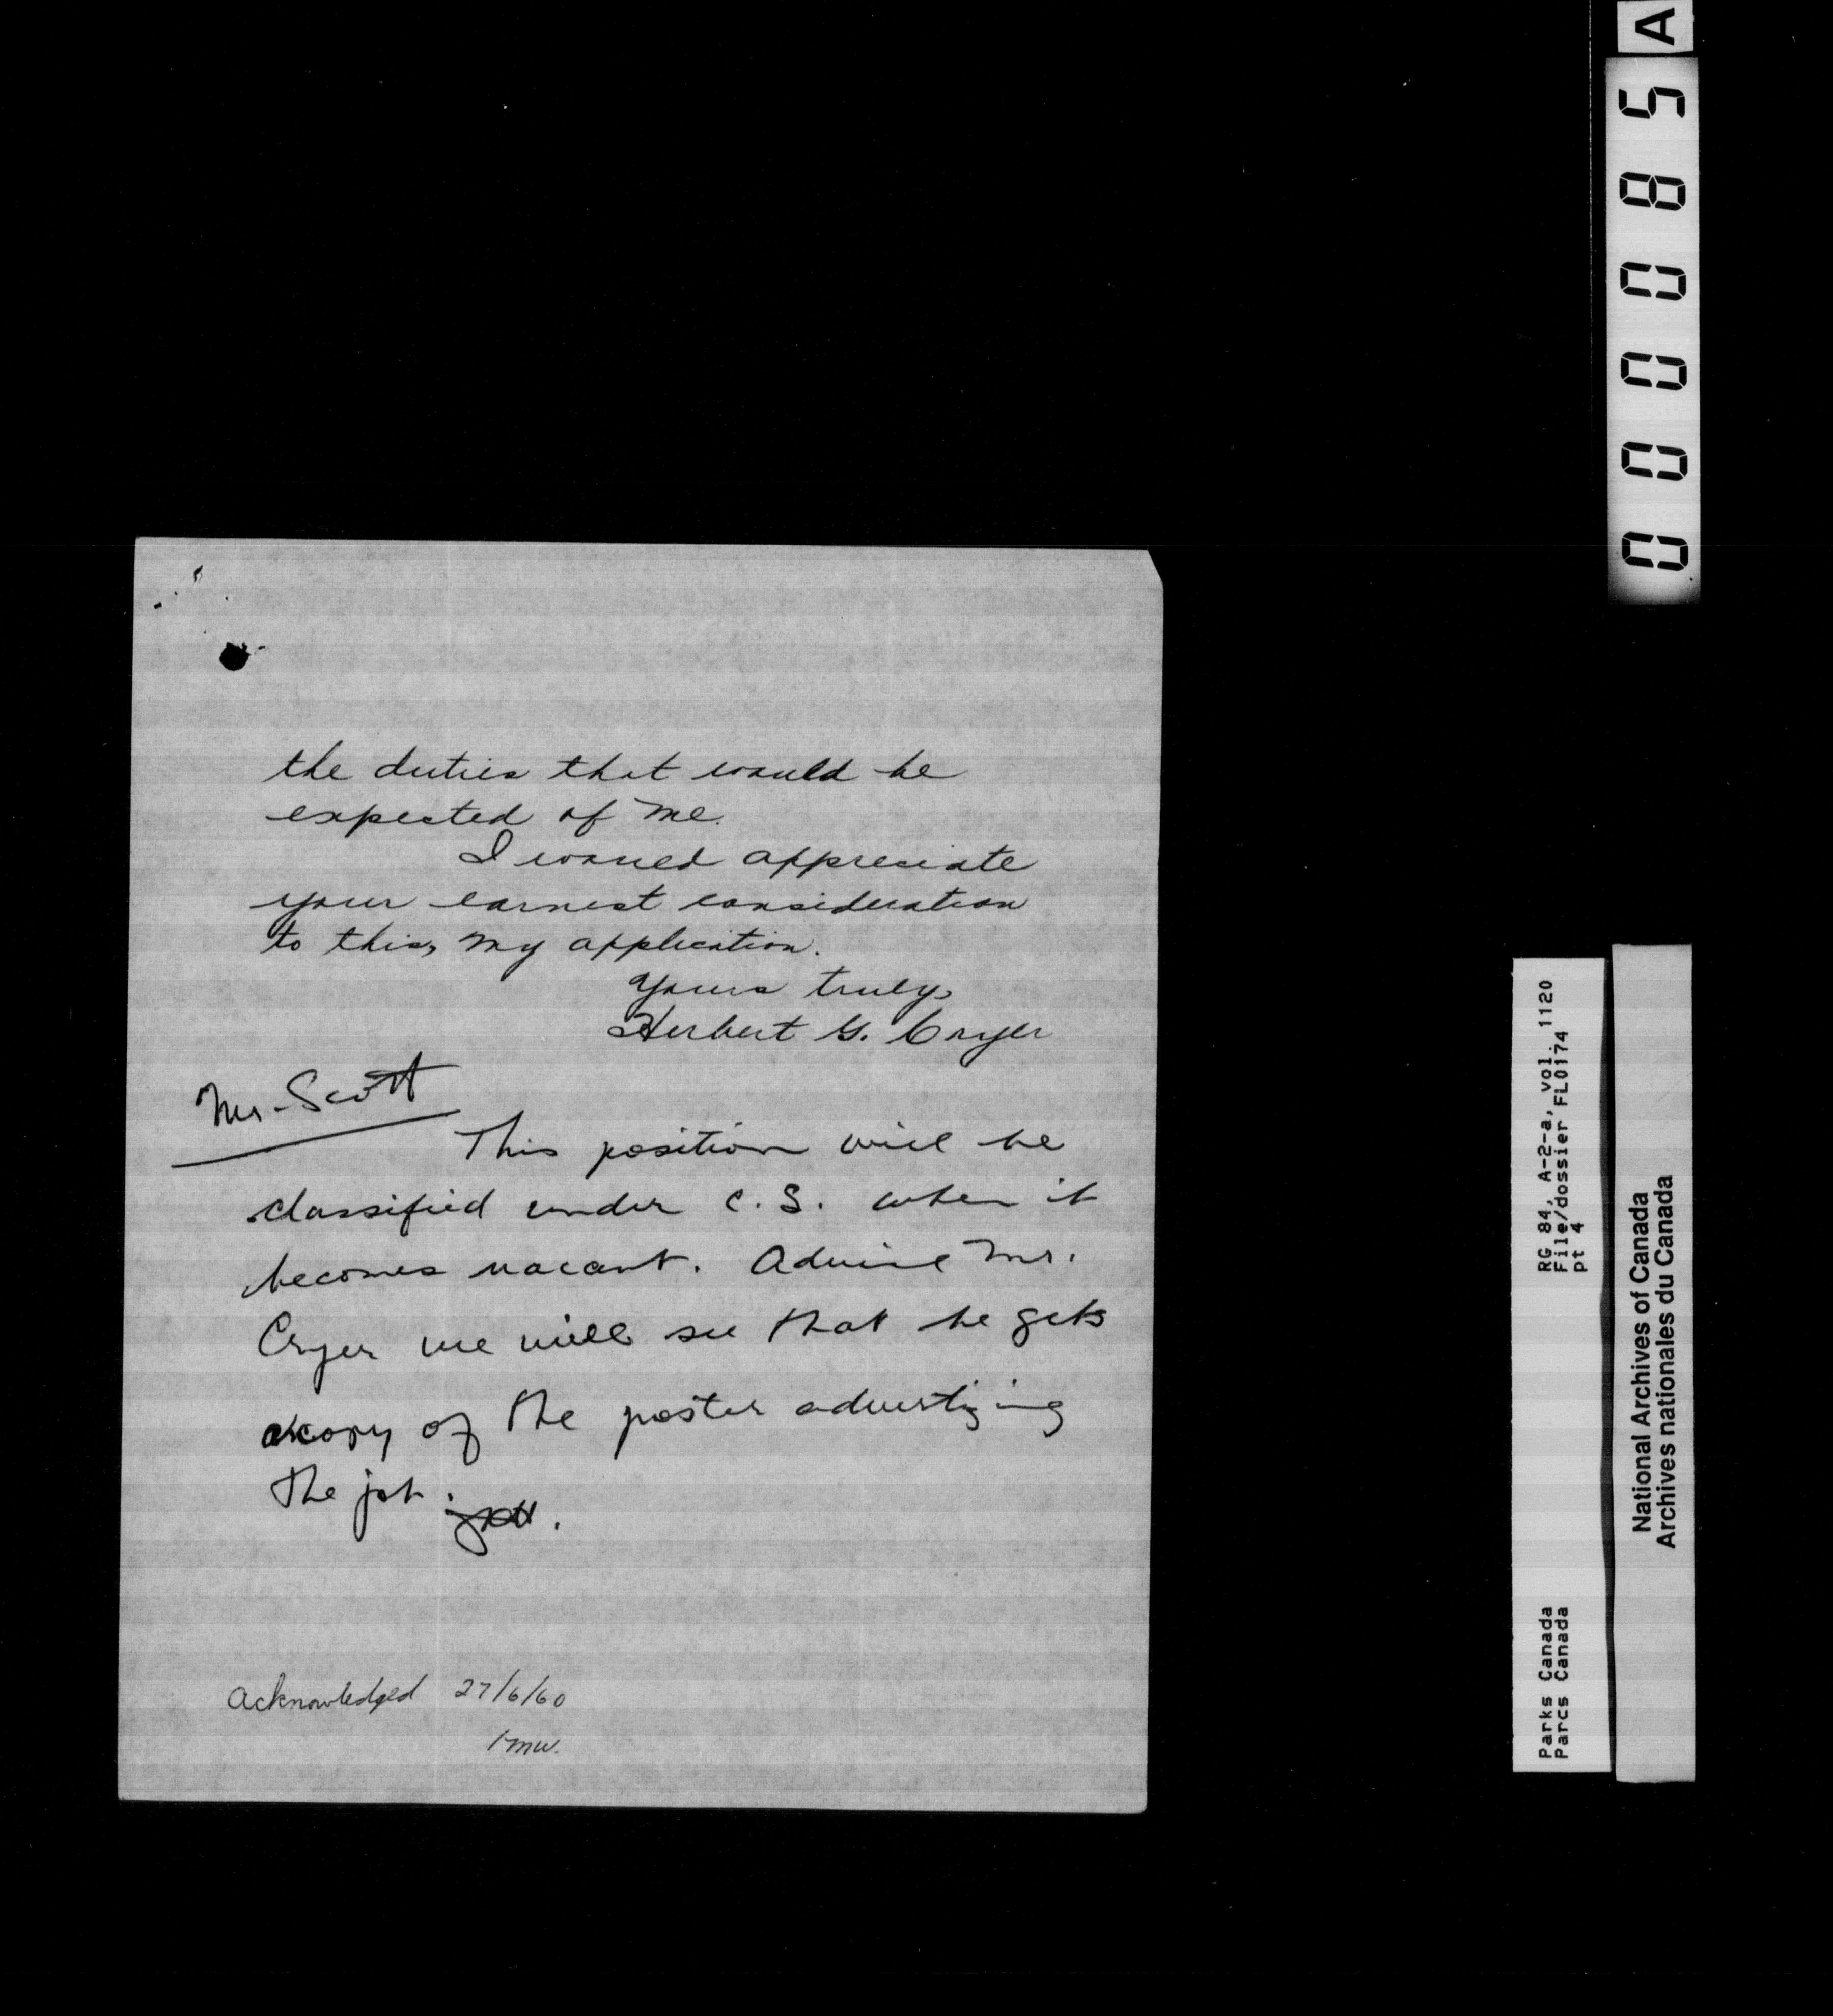 the duties that would be
expected of me.
I would appreciate
your earnest consideration
to this, my application.
Yours truly,
Herbert G. Cryer
Mr. Scott
This position will be
classified under C.S. when it
becomes vacant. Advise Mr.
Cryer we will see that he gets
a copy of the poster advertizing
the job.
Acknowledged 27/6/60
A
000085
RG 84, A-2-a, vol. 1120
File/dossier FL0174
pt 4
Parks Canada
Parcs Canada
National Archives of Canada
Archives nationales du Canada